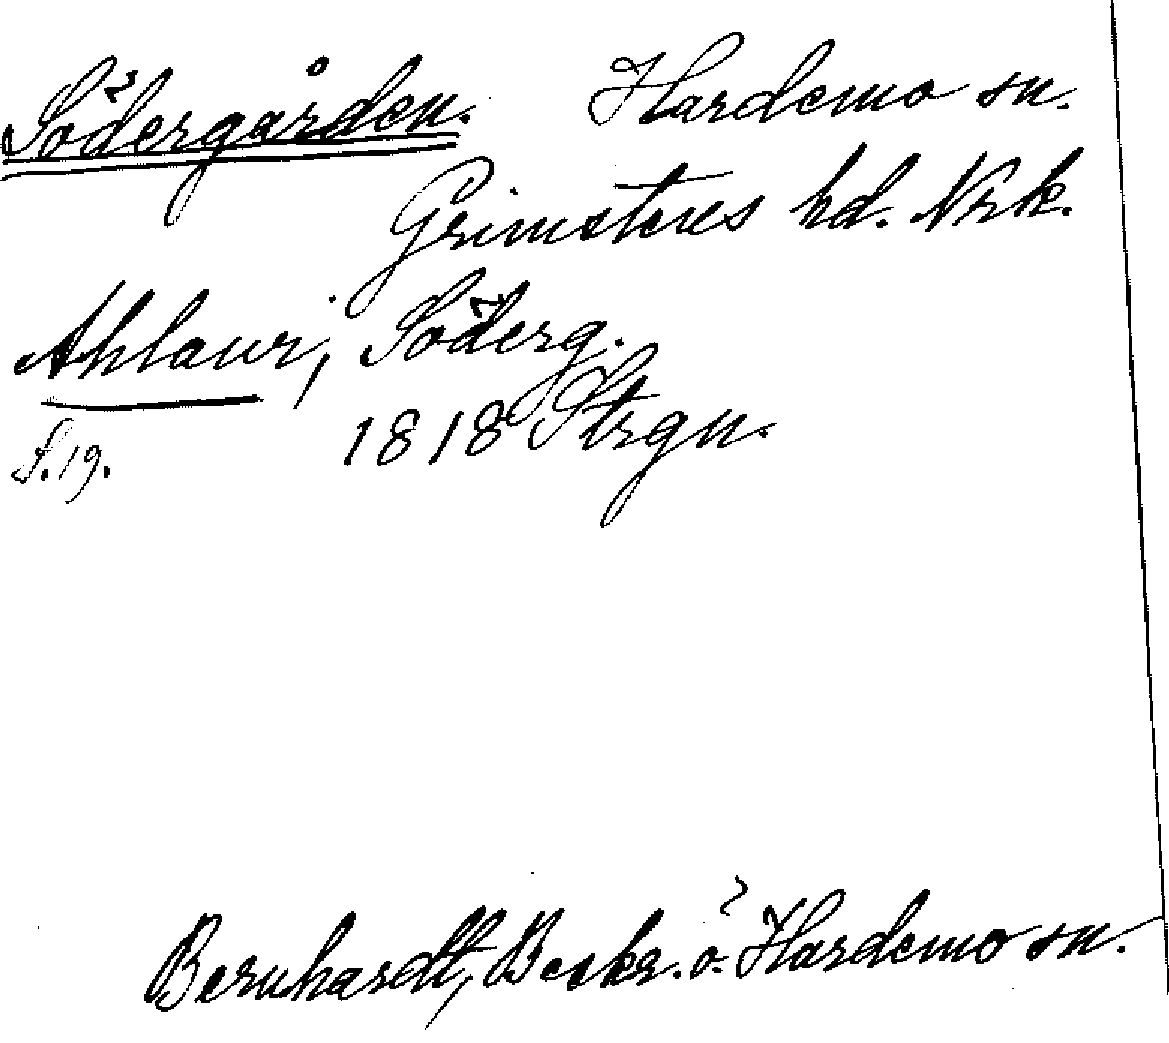 Södergården. Hardemo sn.
Grimstens hd. Nrk.
Ahlaur, Söderg.
S. 19. 1818 Strgn.
Bernhardt, Beskr. ö. Hardemo sn.